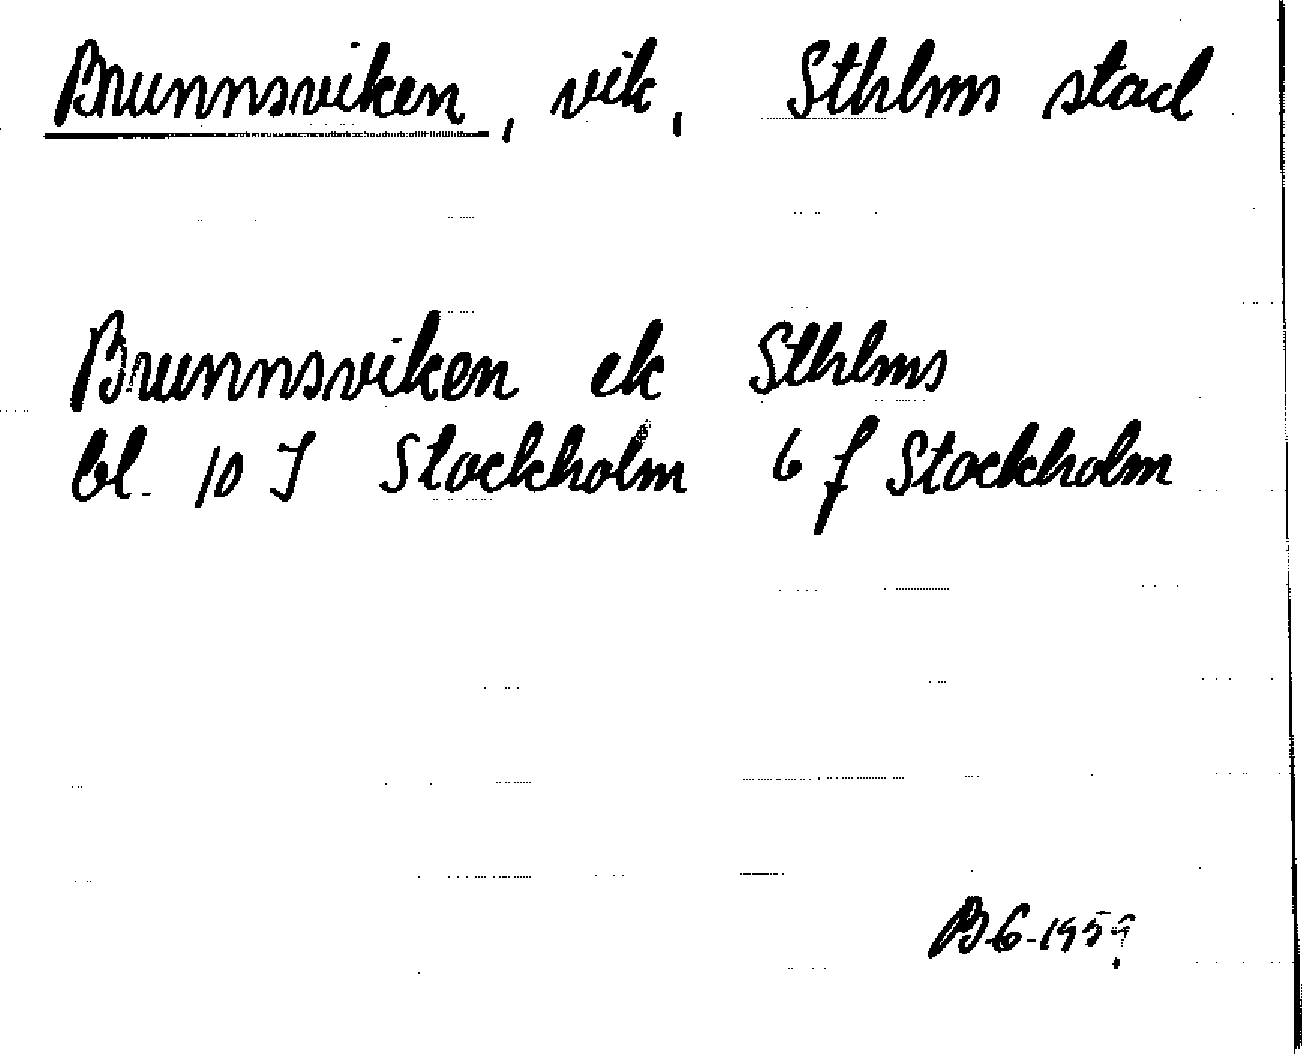 Brunnsviken, vik, Sthlms stad
Brunnsviken ek Sthlms
bl. 10 I Stockholm 6 f Stockholm